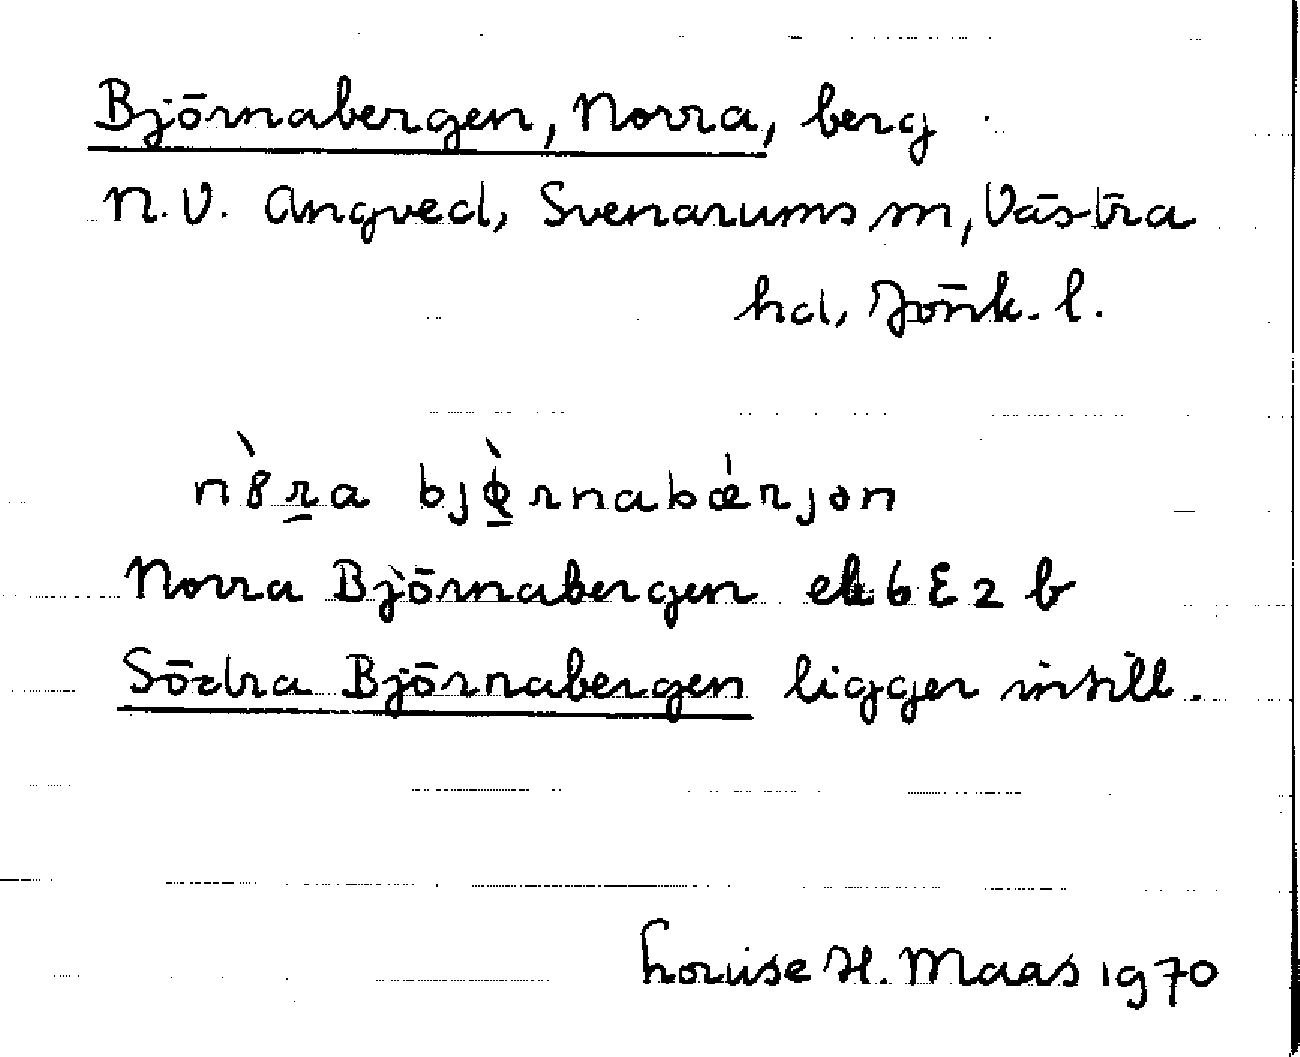 Björnabergen, Norra, berg
N.V. Angved, Svenarums sn, Västra
hd, Jönk. l.
nȍra bjø̀rnabǽrjən
Norra Björnabergen ek 6 E 2 b
Södra Björnabergen ligger intill.
Louise H. Maas 1970